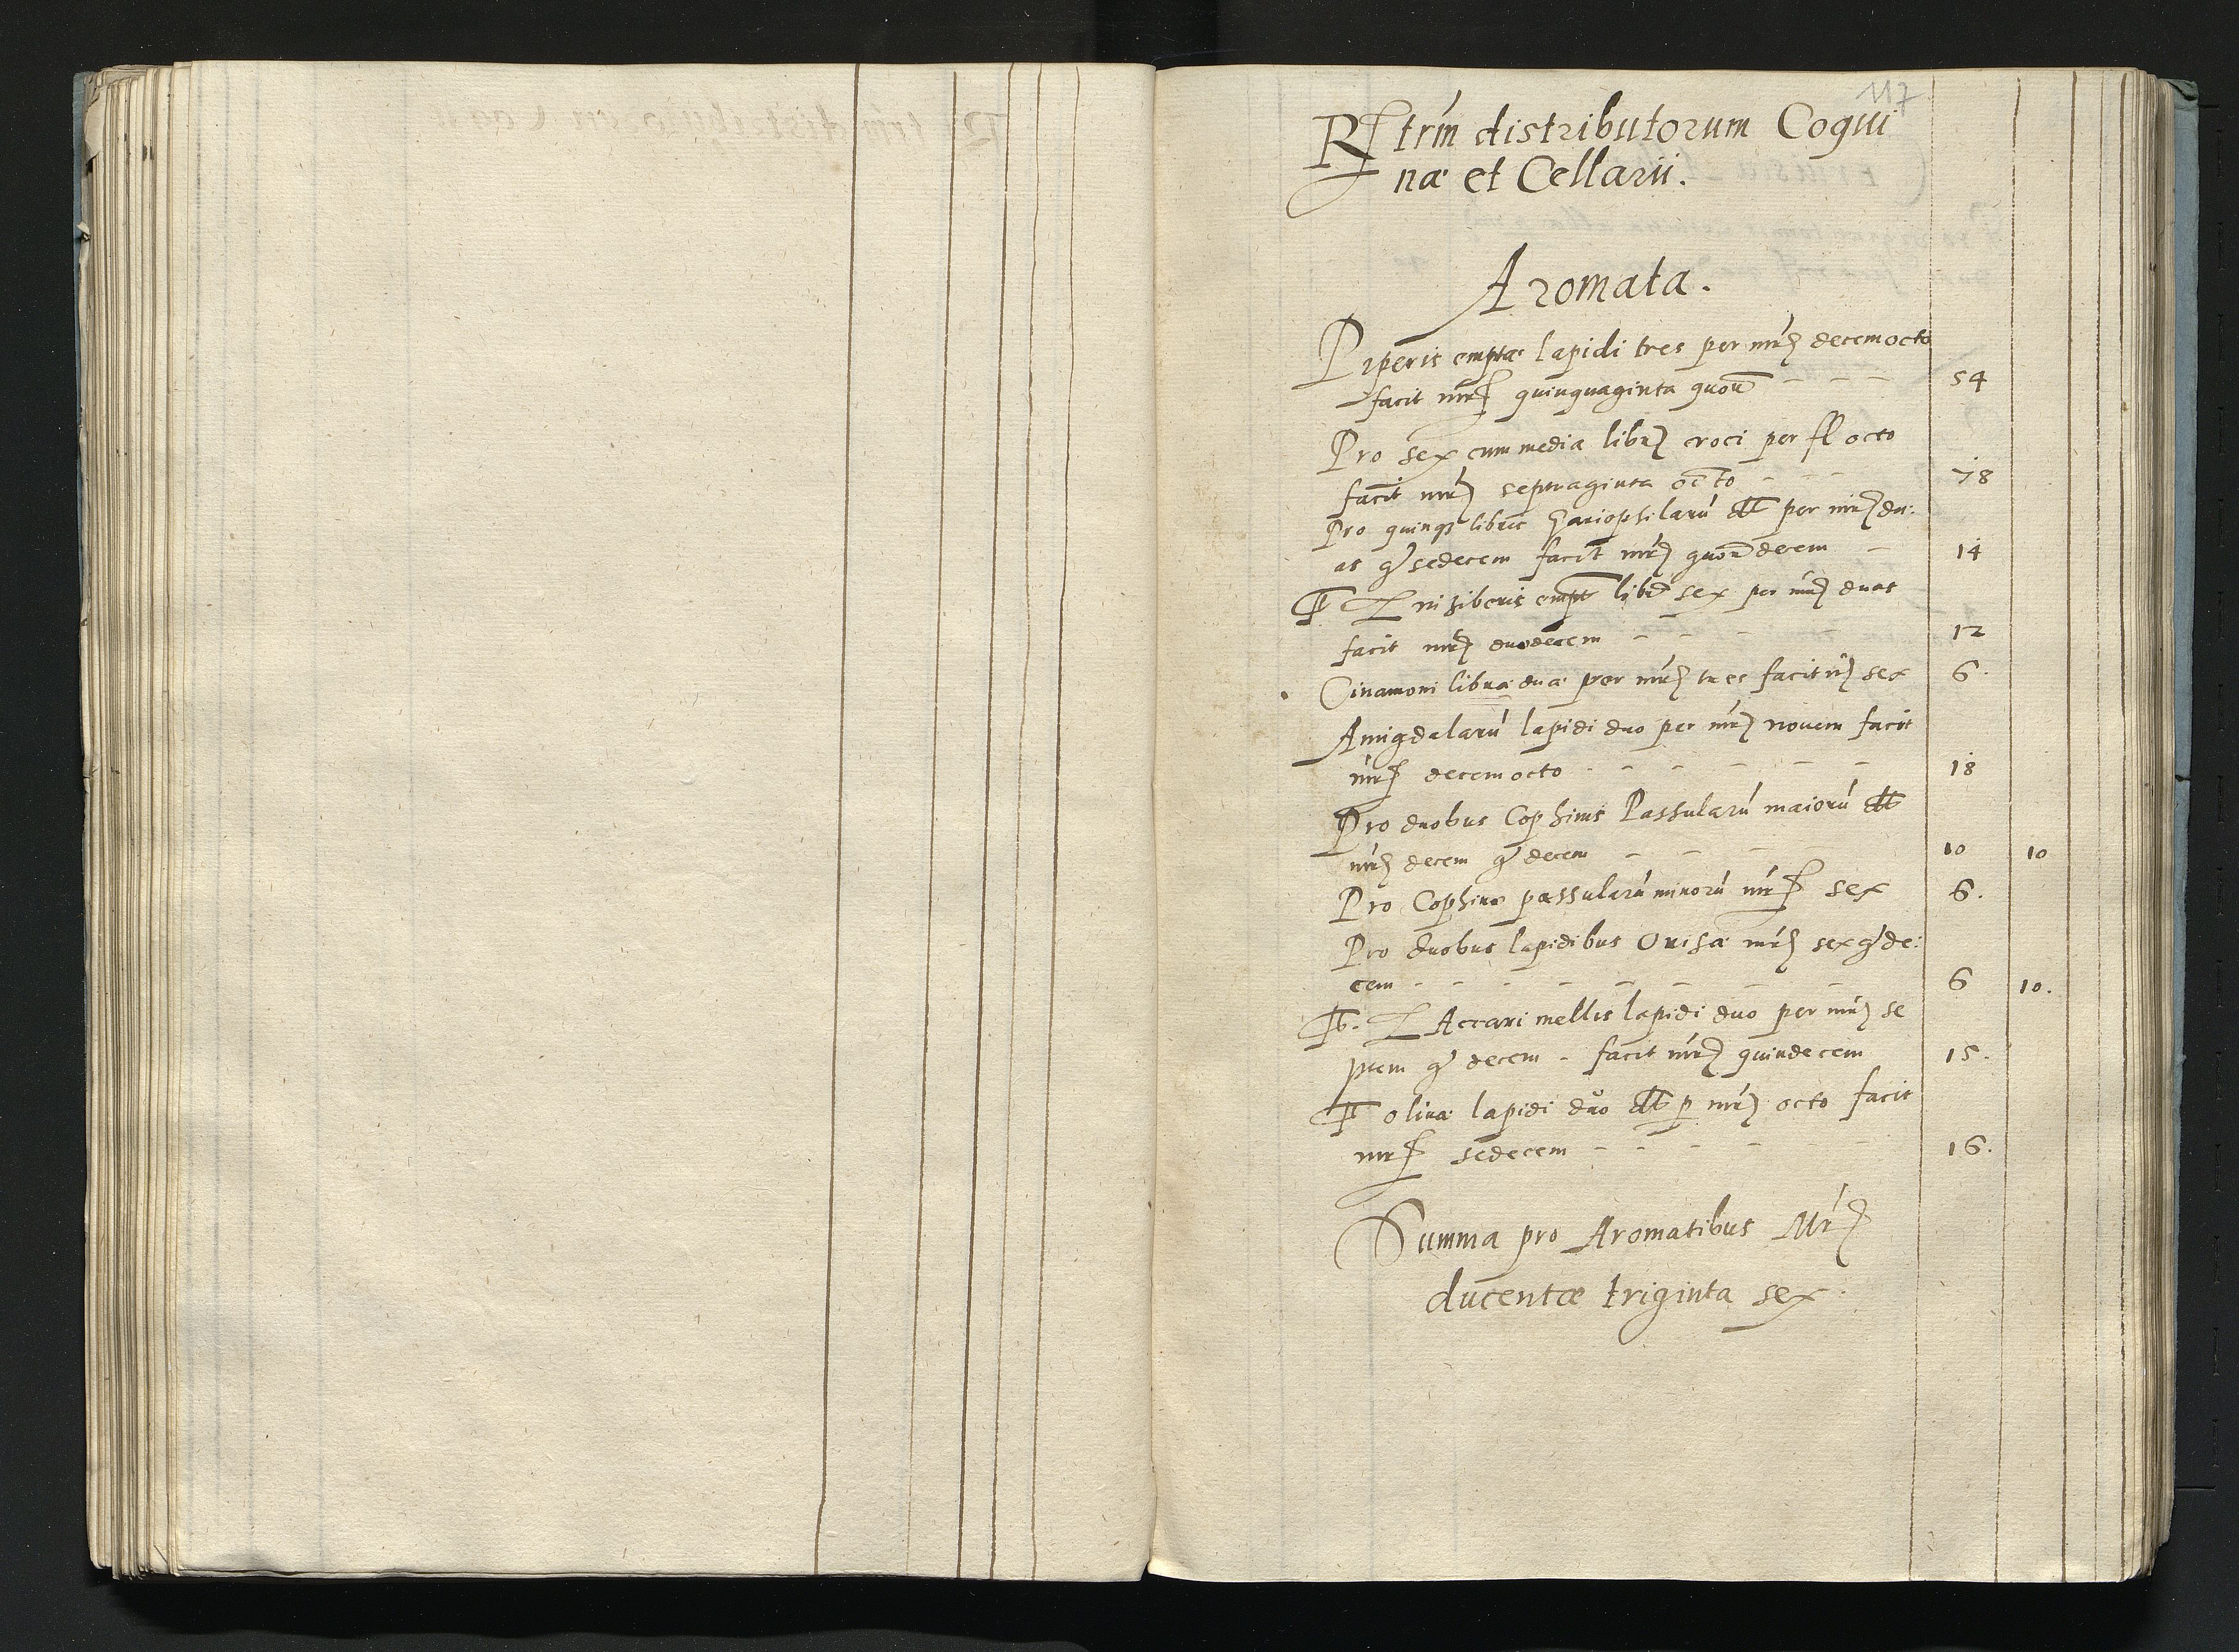 117
Rtrm distributorum Coqui
næ et Cellarii.
Aromata.
Piperis emptæ lapidi tres per mrc decemocto
facit mrc quinquaginta quor 54
Pro sex cum media libr croci per fl octo
facit mrc septuaginta octo 78
Pro quinq libris Gariopsilarū dt per mrc du:
as gr sedecem facit mrc quordecem 14
Zinziberis empt libr sex per mrc duas
facit mrc duodecem 12
Cinamoni libræ duæ per mrc tres facit mrc sex 6
Amigdalarū lapidi duo per mrc novem facit
mrc decemocto 18
Pro duobus Cophinis Passularū maiorū dt
mrc decem gr decem 10 10
Pro Cophino passularū minorū mrc sex 6.
Pro duobus lapidibus Orisæ mrc sex gr de:
cem 6 10.
ZAccari mellis lapidi duo per mrc se
ptem gr decem facit mrc quindecem 15.
olivæ lapidi duo dt p mrc octo facit
mrc sedecem 16.
Summa pro Aromatibus Mrc
ducentæ triginta sex.